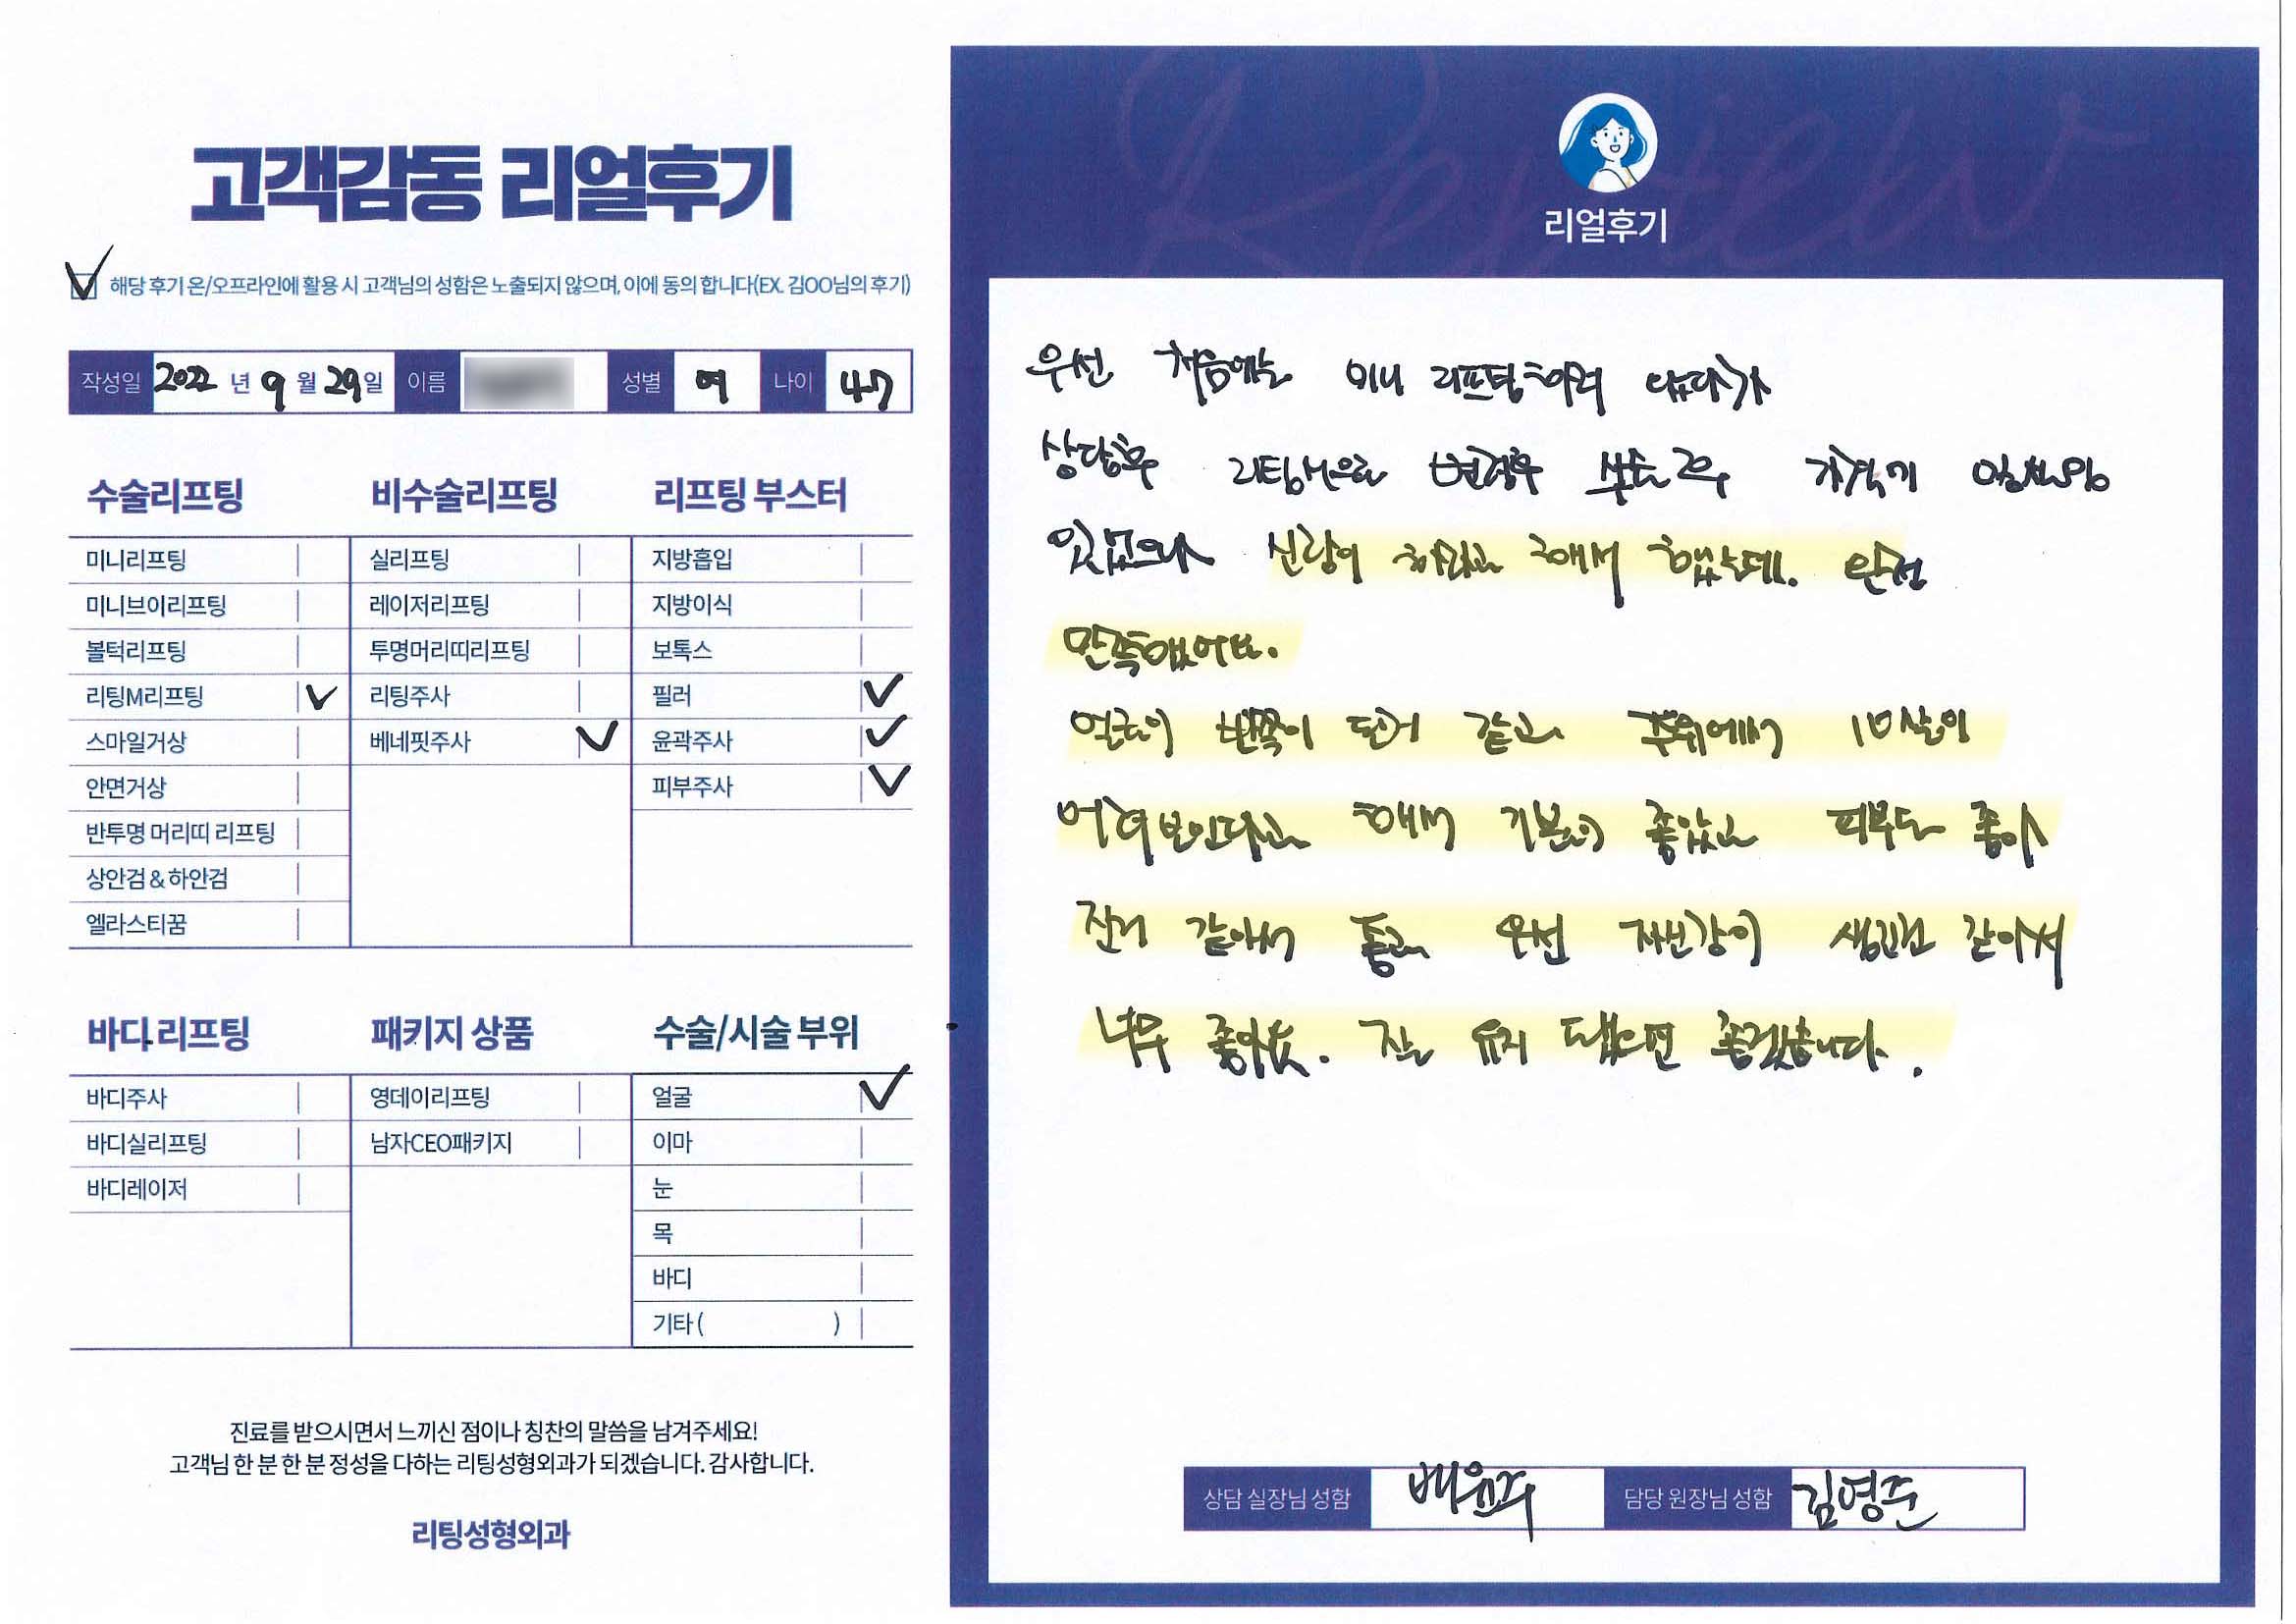 고객감동 리얼후기
해당 후기 온/오프라인에 활용 시 고객님의 성함은 노출되지 않으며, 이에 동의 합니다(EX. 김OO님의 후기)
작성일 2022 년 9 월 29일 이름 성별 여 나이 47
수술리프팅
미니리프팅
미니브이리프팅
볼턱리프팅
리팅M리프팅
스마일거상
안면거상
반투명 머리띠 리프팅
상안검 & 하안검
엘라스티꿈
비수술리프팅
실리프팅
레이저리프팅
투명머리띠리프팅
리팅주사
베네핏주사
리프팅 부스터
지방흡입
지방이식
보톡스
필러
윤곽주사
피부주사
바디 리프팅
바디주사
바디실리프팅
바디레이저
패키지 상품
영데이리프팅
남자CEO패키지
수술/시술 부위
얼굴
이마
눈
목
바디
기타 ( )
진료를 받으시면서 느끼신 점이나 칭찬의 말씀을 남겨주세요!
고객님 한 분 한 분 정성을 다하는 리팅성형외과가 되겠습니다. 감사합니다.
리팅성형외과
Review
리얼후기
우선 처음에는 미니 리프팅하려 했다가
상담후 리팅M으로 변경후
신랑이 하라고 해서 했는데. 완전
만족했어요.
얼굴이 반쪽이 된거 같고 주위에서 10살이
어려보인다고 해서 기분이 좋았고 피부도 좋아
진거 같아서 좋고 우선 자신감이 생긴것 같아서
너무 좋아요. 잘 유지 됐으면 좋겠습니다.
상담 실장님 성함 배윤주 담당 원장님 성함 김영준